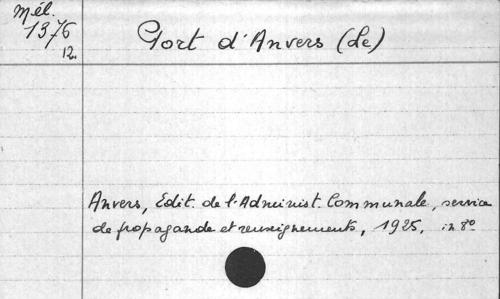 Mél.
1376
12.
Port d'Anvers (Le)
Anvers, Edit. de l'Administ. Communale, service
de propagande et renseignements, 1925, in 8º